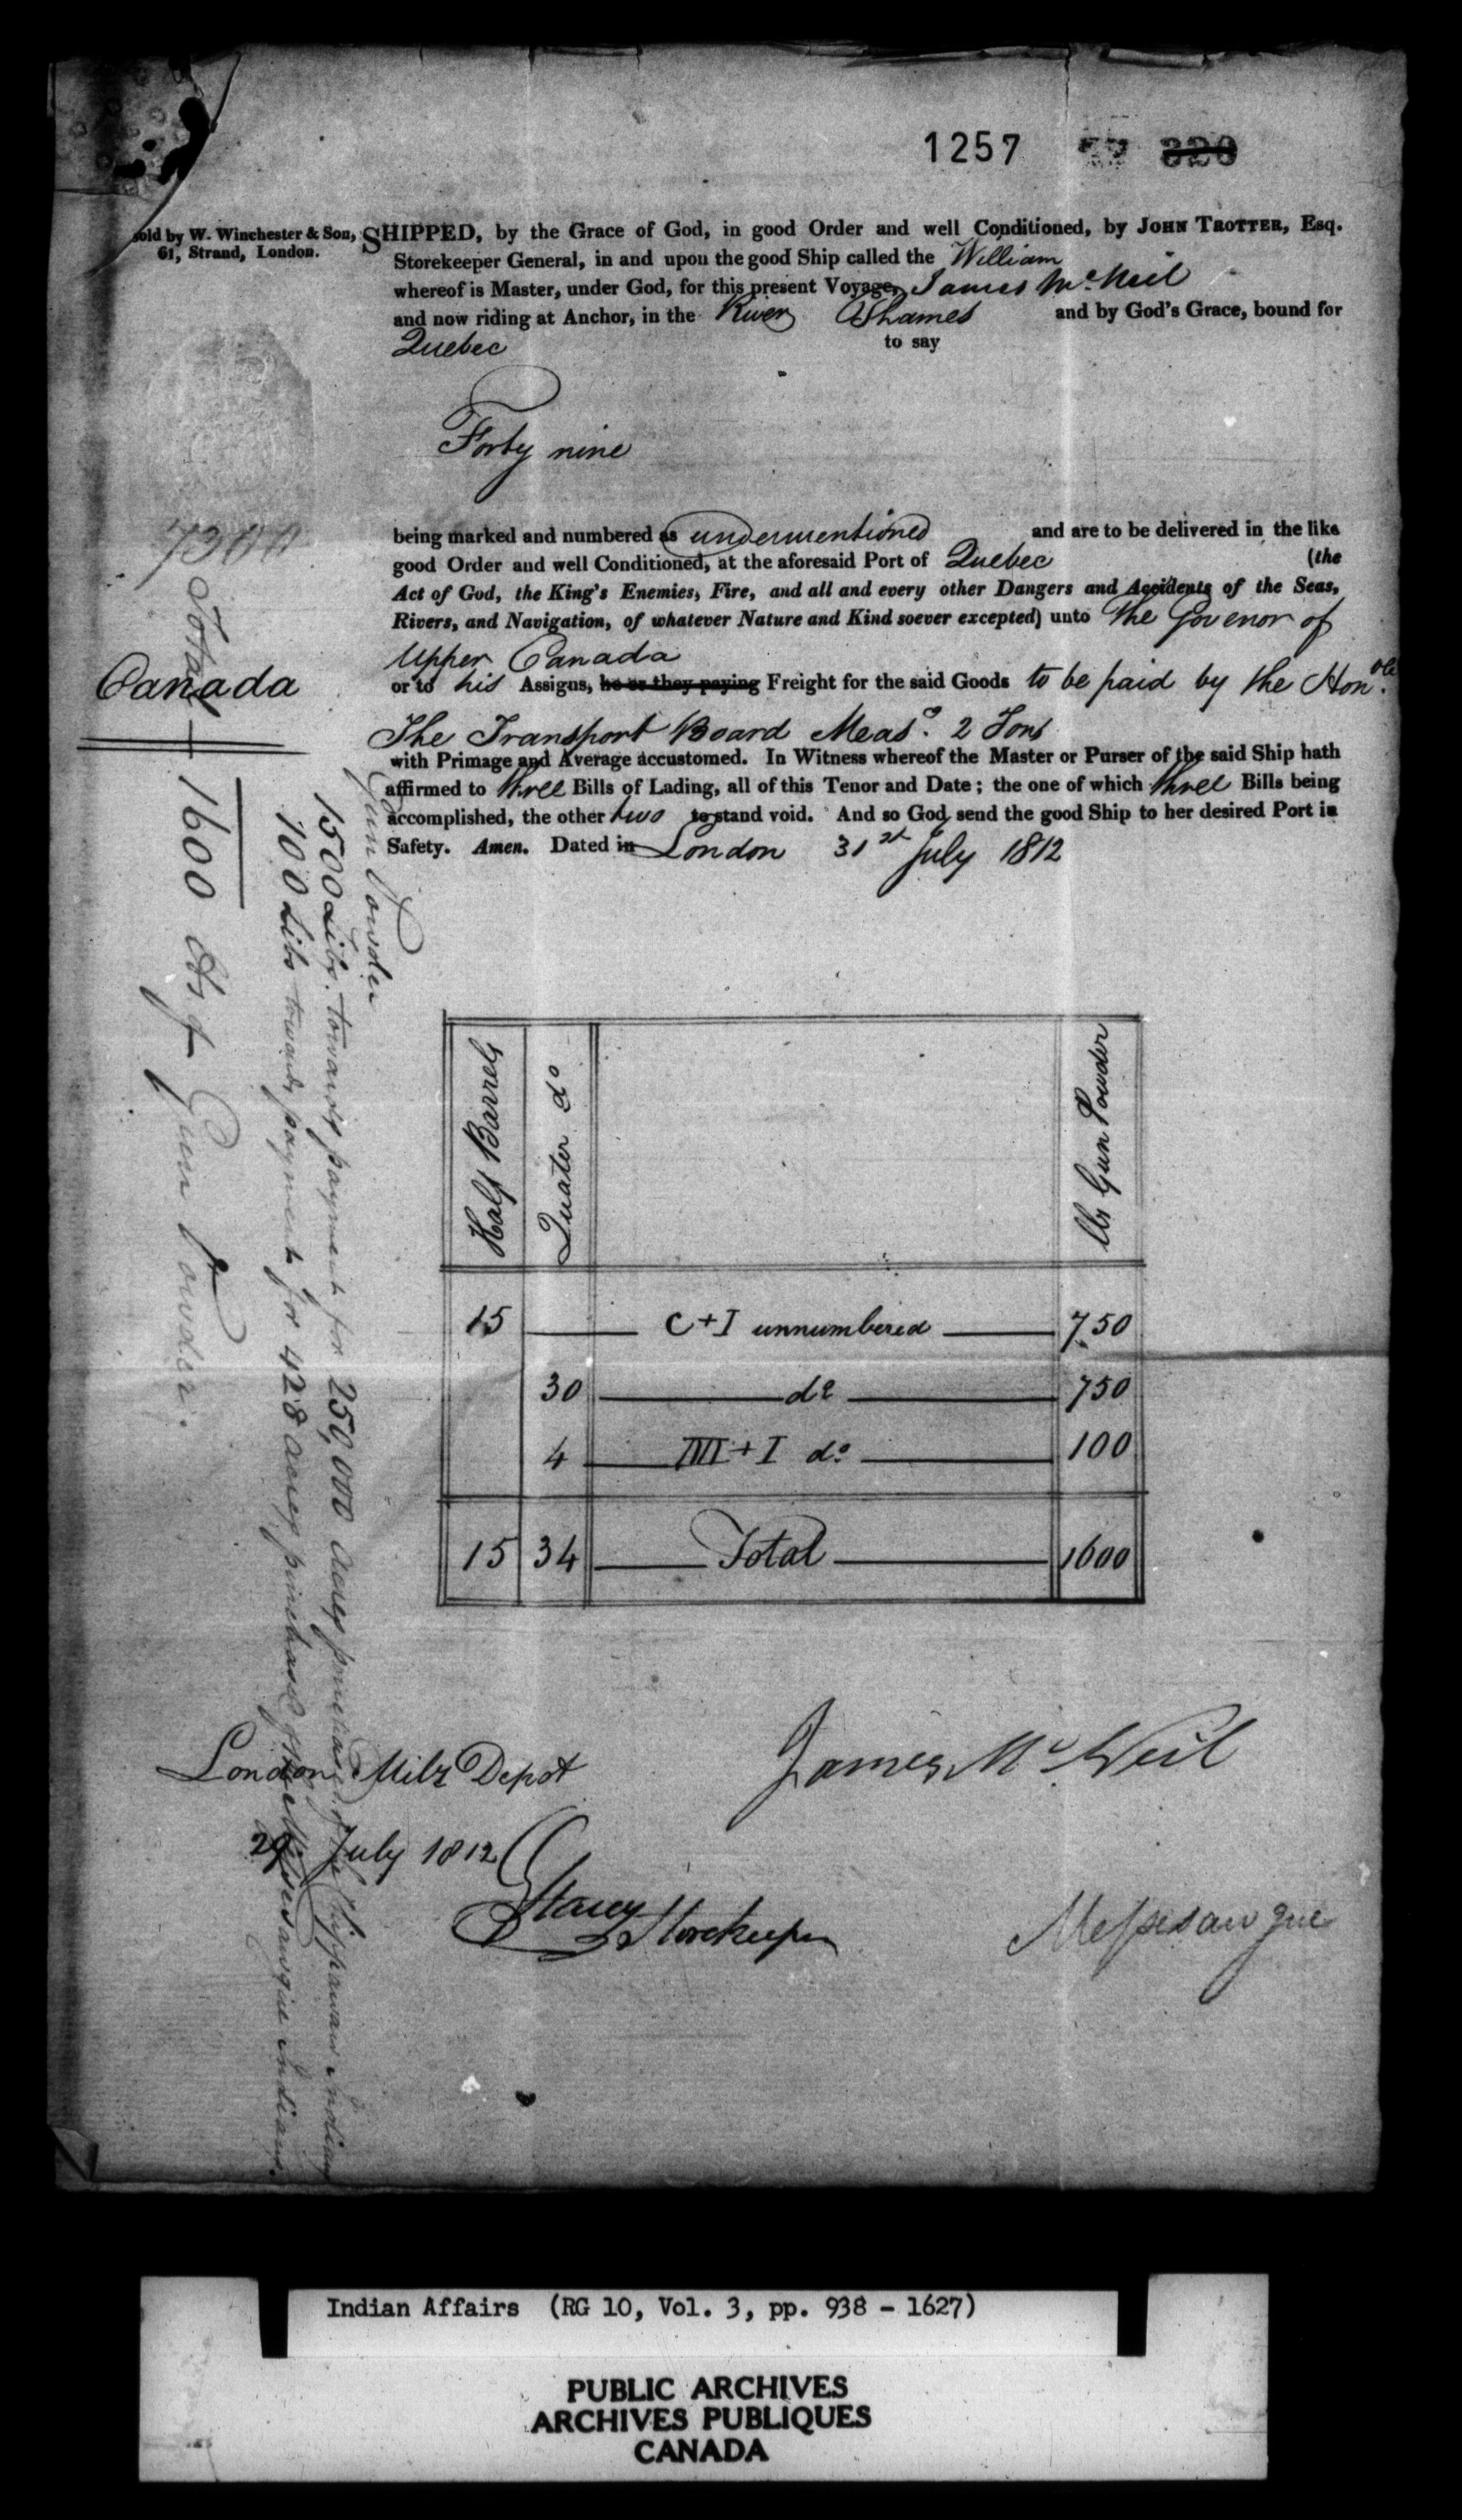 1257 320
Sold by W. Winchester & Son,
61, Strand, London.
SHIPPED, by the Grace of God, in good Order and well Conditioned, by JOHN TROTTER, Esq.
Storekeeper General, in and upon the good Ship called the William
whereof is Master, under God, for this present Voyage, James McNeil
and now riding at Anchor, in the River Thames and by God's Grace, bound for
Quebec to say
Forty nine
being marked and numbered as undermentioned and are to be delivered in the like
good Order and well Conditioned, at the aforesaid Port of Quebec (the
Act of God, the King's Enemies, Fire, and all and every other Dangers and Accidents of the Seas,
Rivers, and Navigation, of whatever Nature and Kind soever excepted) unto the Govenor of
Upper Canada
or to his Assigns, he or they paying Freight for the said Goods to be paid by the Honble.
The Transport Board Meas.g 2 Tons
with Primage and Average accustomed. In Witness whereof the Master or Purser of the said Ship hath
affirmed to three Bills of Lading, all of this Tenor and Date; the one of which three Bills being
accomplished, the other two to stand void. And so God send the good Ship to her desired Port in
Safety. Amen. Dated in London 31st July 1812
7300
Canada
Gun Powder
1500 Libs. towards payment for 250,000 acres purchased of the Chippawas Indians
100 Libs towards payment for 428 acres purchased of the Missesaugue Indians.
Total 1600 lbs of Gun Powder.
Half Barrels Quater do lbs Gun Powder
15 C+I unnumbered 750
30 do 750
4 IIII+I do 100
15 34 Total 1600
London Mily Depot
29 July 1812
James McNeil
Stacey
Storekeeper
Messesaugue
Indian Affairs (RG 10, Vol. 3, pp. 938 - 1627)
PUBLIC ARCHIVES
ARCHIVES PUBLIQUES
CANADA